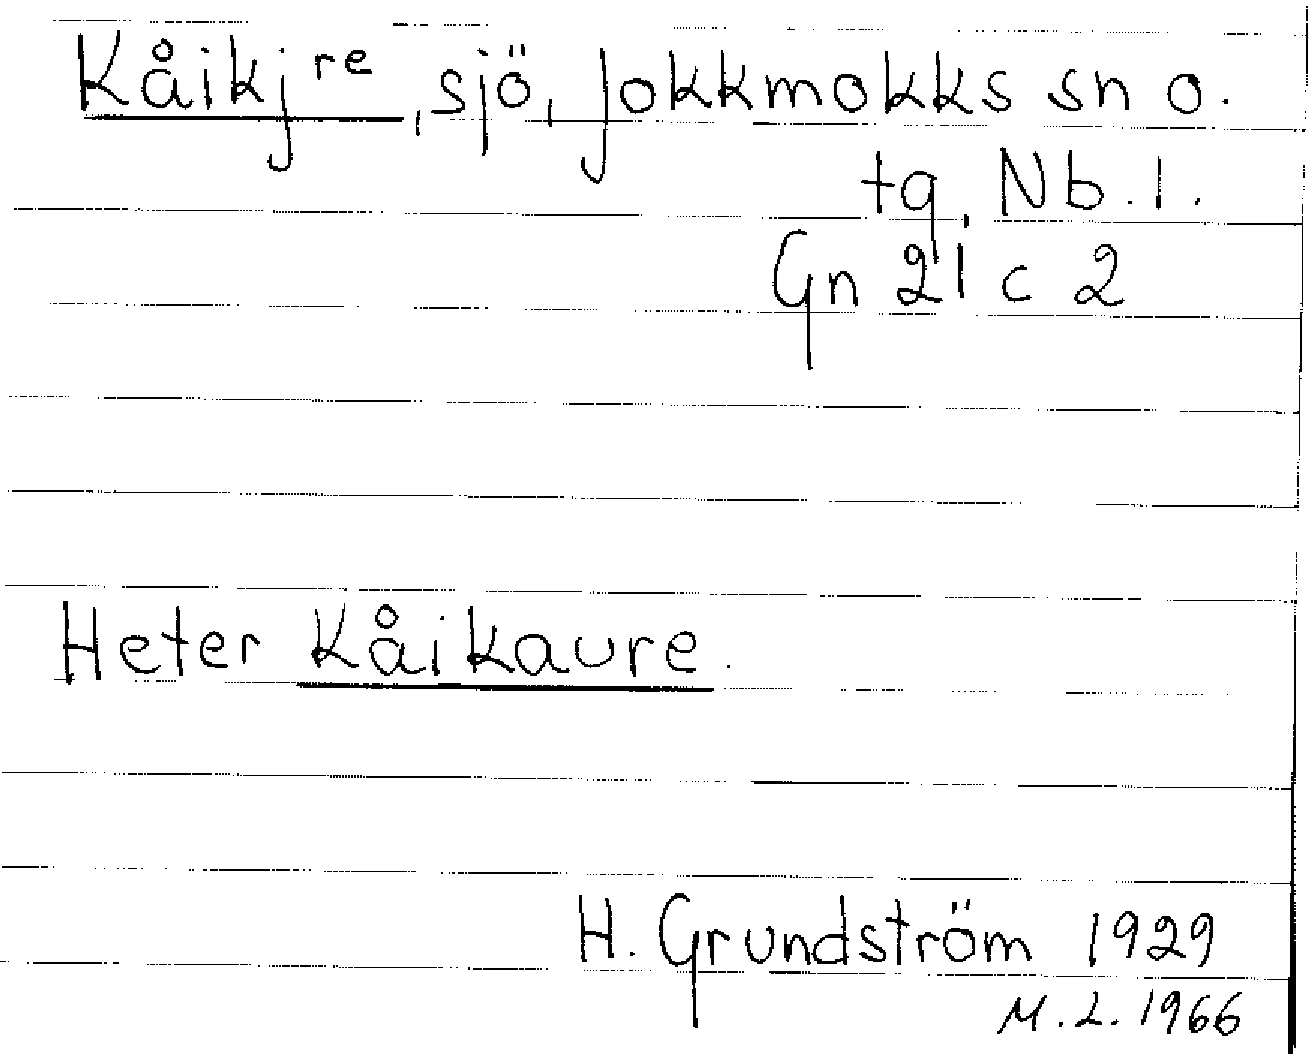 Kåikj re, sjö, Jokkmokks sn o.
tg, Nb. l.
Gn 21 c 2
Heter Kåikaure.
H. Grundström 1929
M. L. 1966